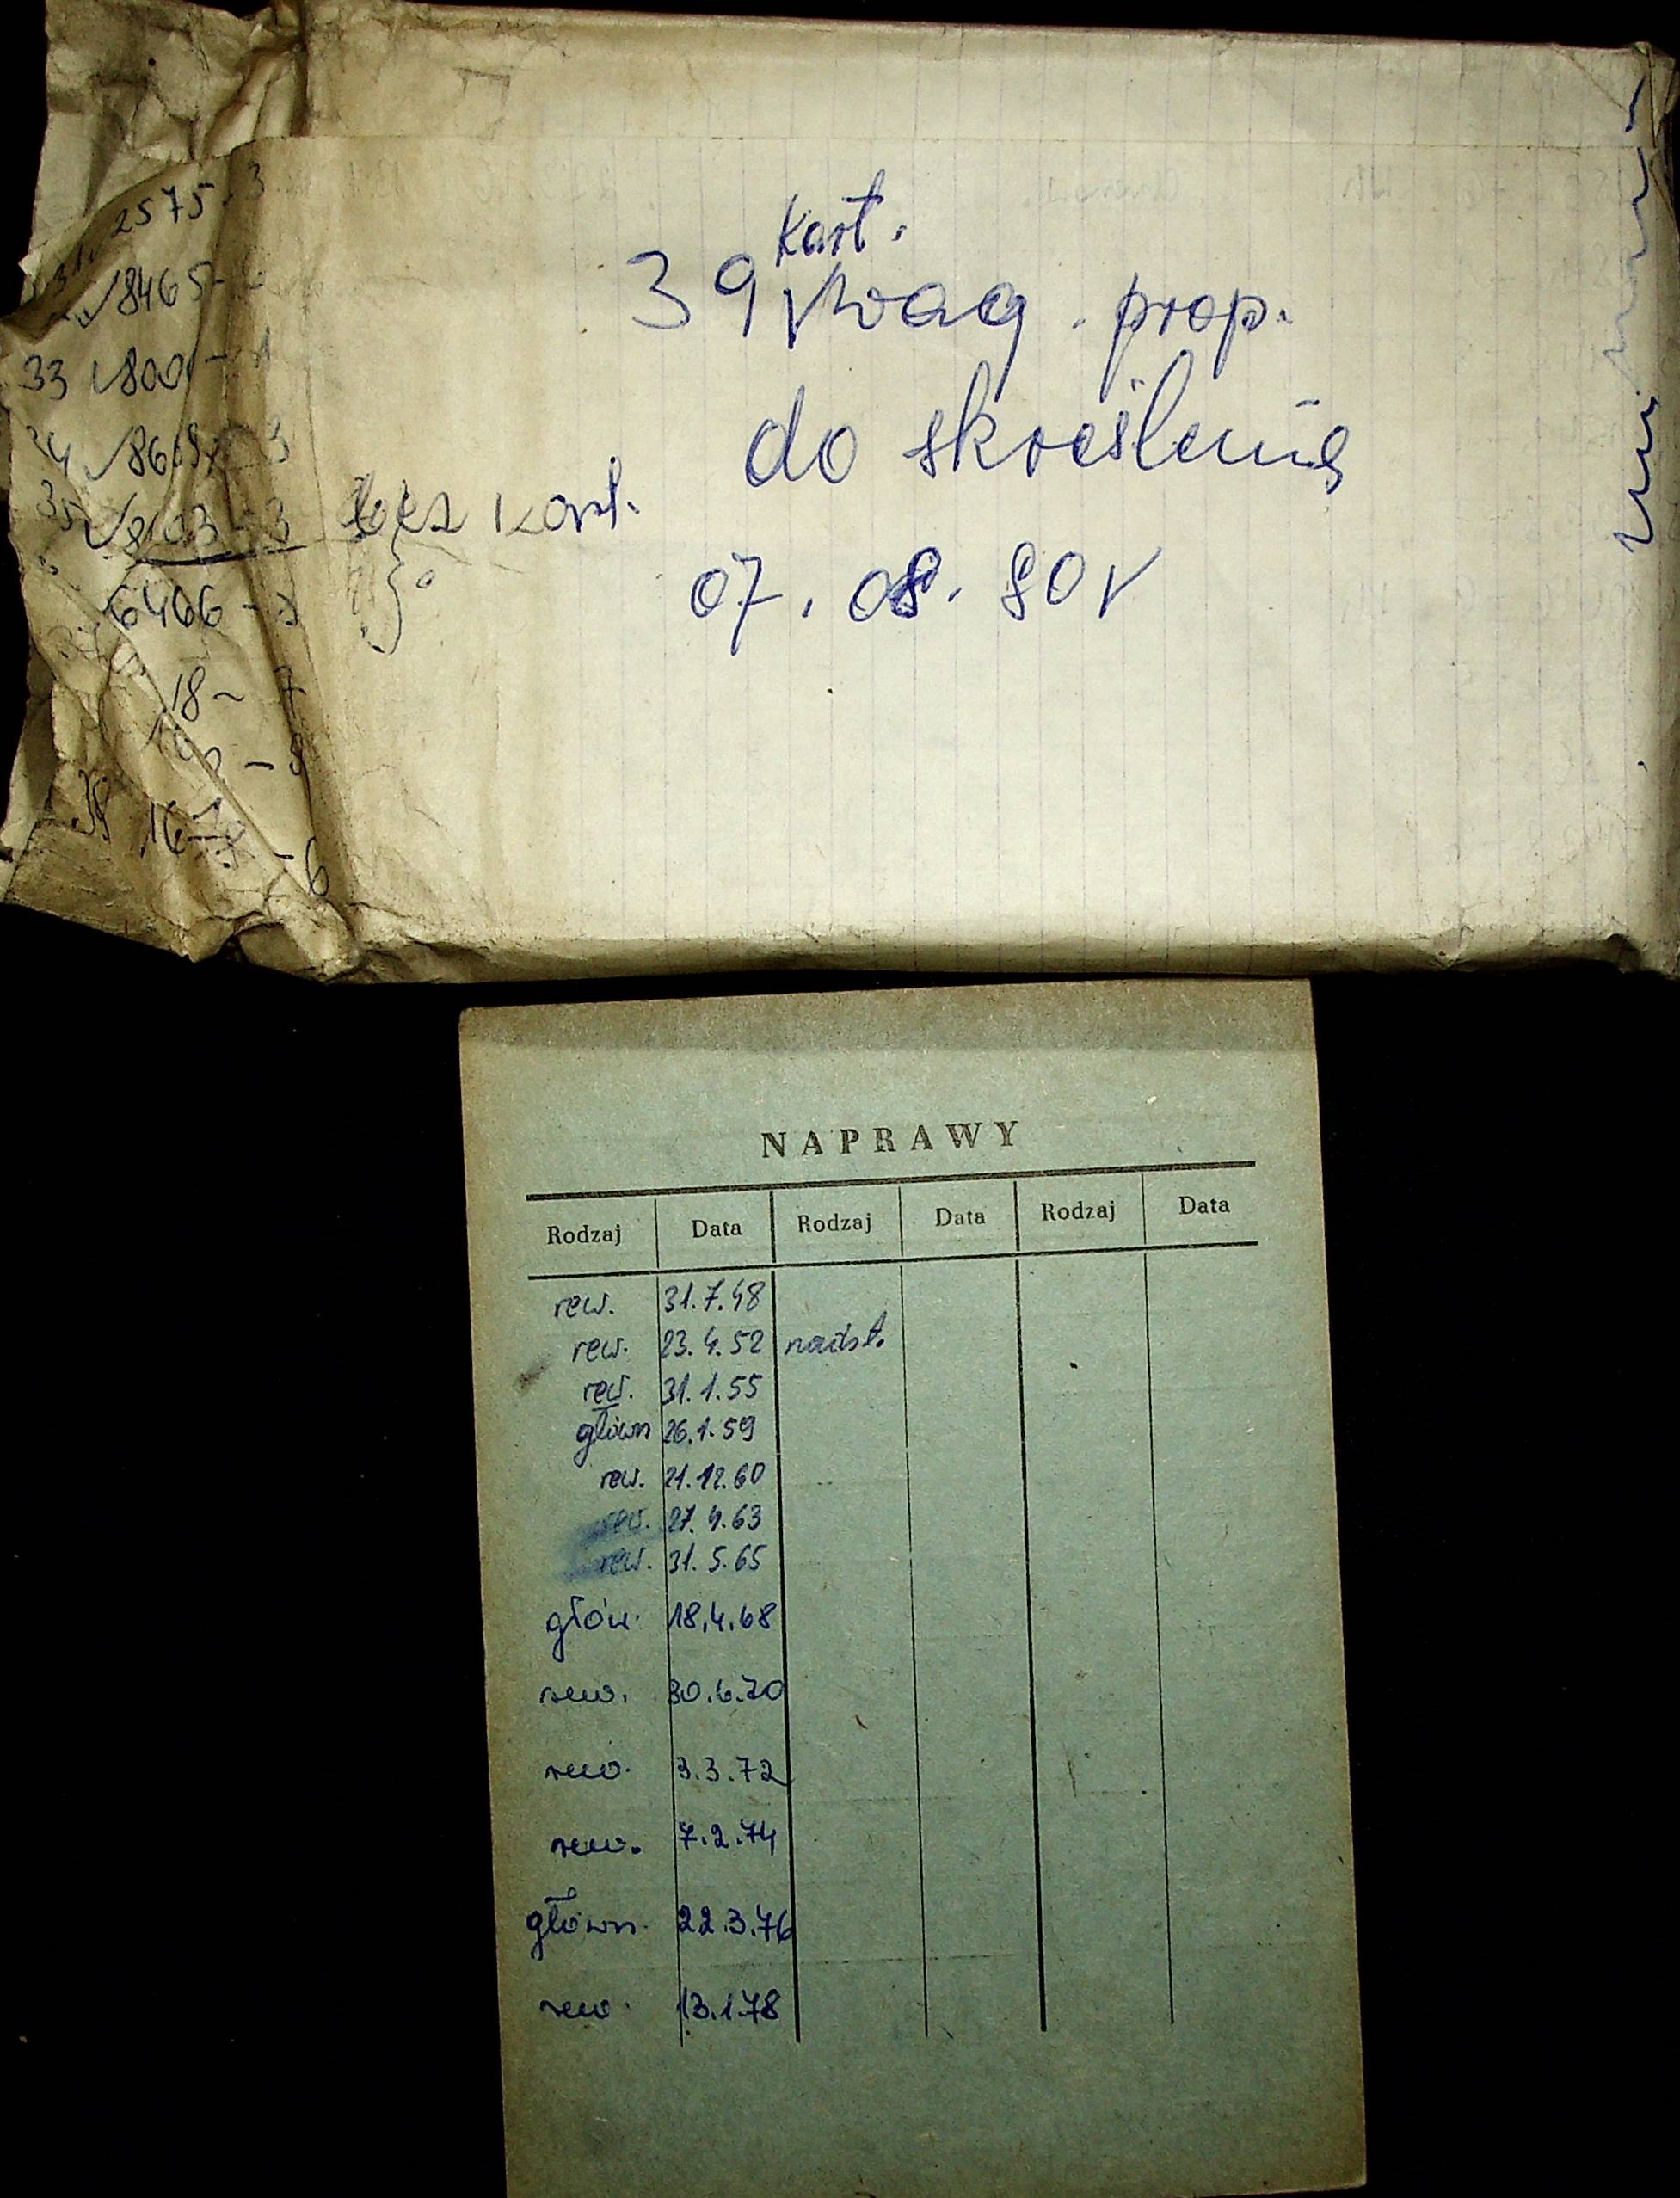 Kart.
39 wag. prop.
do skreślenia
bez kart.
07. 08. 80 r
2575-3
8465-
33 800 - 1
8103-3
6466 -
18- 7
NAPRAWY
Rodzaj Data Rodzaj Data Rodzaj Data
rew. 31.7.48
rew. 23.4.52 nadst.
rew. 31.1.55
główn 26.1.59
rew. 21.12.60
rew. 27.4.63
rew. 31.5.65
głów. 18.4.68
rew. 30.6.70
rew. 3.3.72
rew. 7.2.74
główn. 22.3.76
rew. 13.1.78